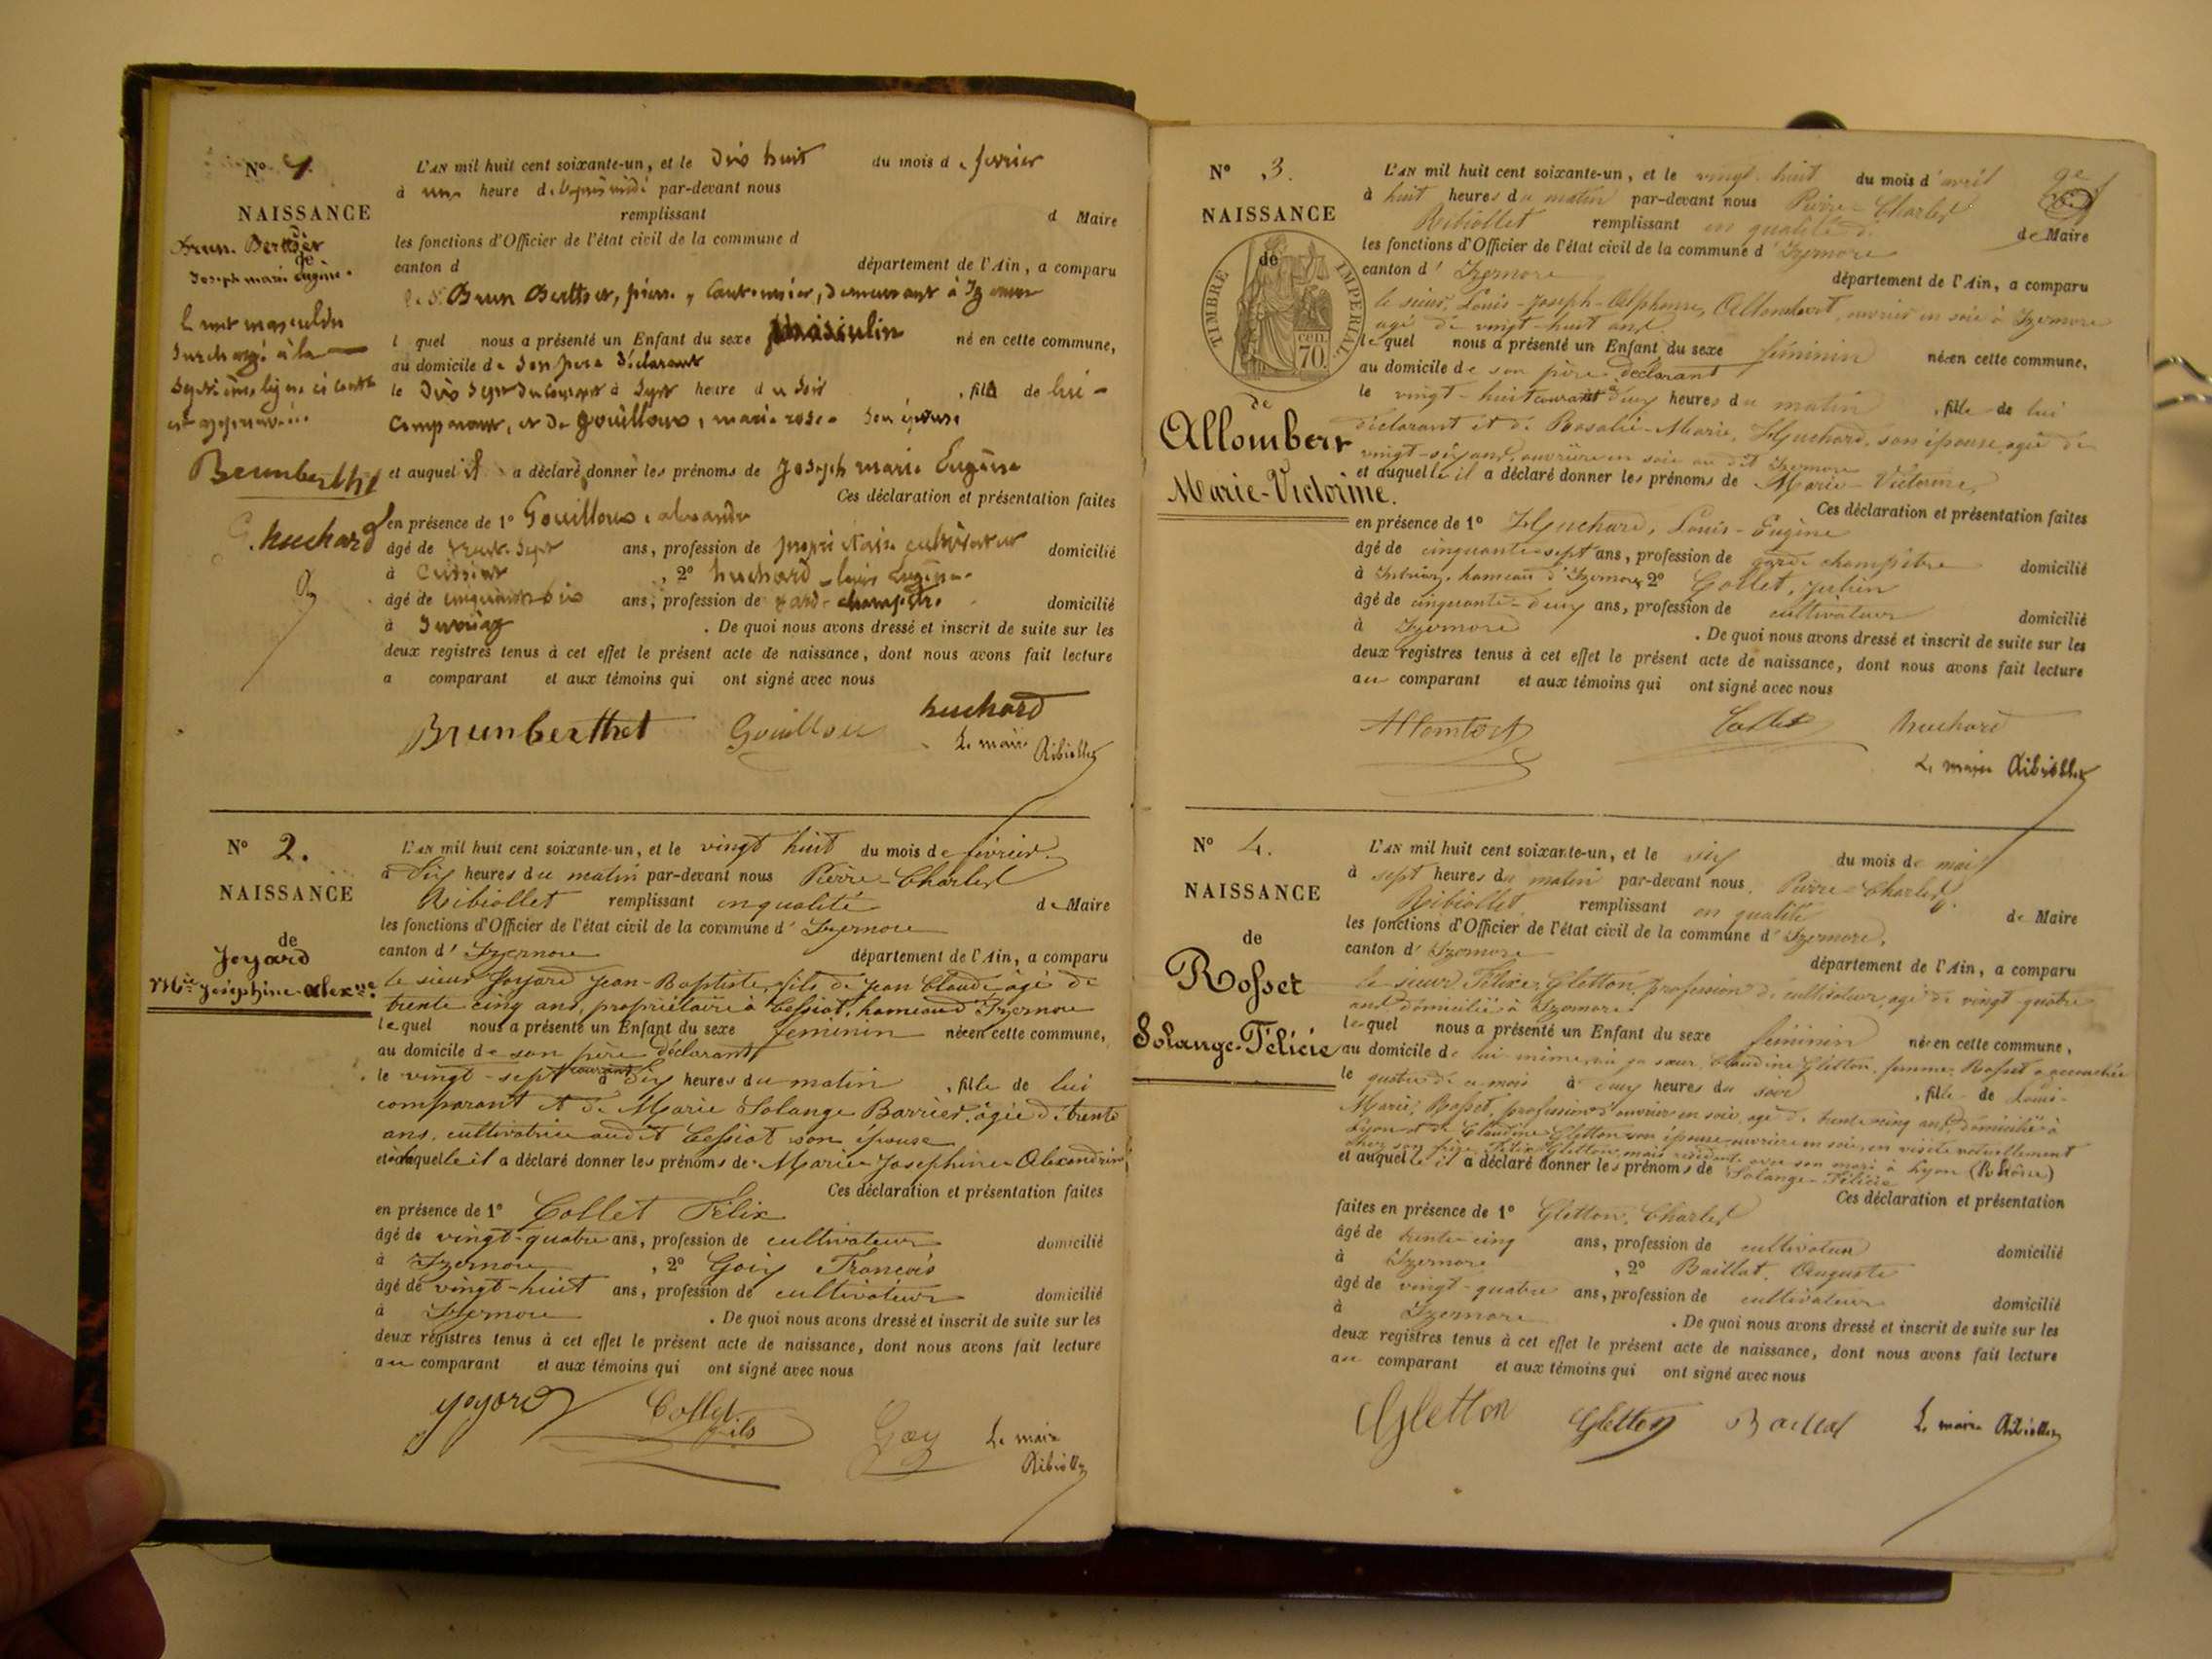 N° 1.
NAISSANCE
de
Brun Berthet
Joseph marie Eugène.
le mot masculin
surchargé à la
septième ligne ci contre
est approuvé
Brunberthet
G. huchard
L'AN mil huit cent soixante-un, et le dix huit du mois de fevrier
à une heure depuis midi par-devant nous
remplissant d Maire
les fonctions d'Officier de l'état civil de la commune d
canton d département de l'Ain, a comparu
le Sr Brun Berthet, pierre, Cantonnier, demeurant à Izernore
lequel nous a présenté un Enfant du sexe masculin né en cette commune,
au domicile de son pere déclarant
le dix sept du courant à sept heure du soir, fils de lui
comparant, et de gouilloux, marie rose son épouse
et auquel il a déclaré donner les prénoms de Joseph marie Eugène
Ces déclaration et présentation faites
en présence de 1° Gouilloux alexandre
âgé de trente sept ans, profession de propriétaire cultivateur domicilié
à Cessiat, 2° huchard louis Eugène
âgé de cinquante six ans, profession de garde champêtre domicilié
à . De quoi nous avons dressé et inscrit de suite sur les
deux registres tenus à cet effet le présent acte de naissance, dont nous avons fait lecture
a comparant et aux témoins qui ont signé avec nous
Brunberthet Gouilloux huchard
Le maire Ribiollet
N° 2.
NAISSANCE
de
Joyard
Mie Joséphine-Alexne.
L'AN mil huit cent soixante-un, et le vingt huit du mois de février
à dix heures du matin par-devant nous Pierre-Charles
Ribiollet remplissant en qualité de Maire
les fonctions d'Officier de l'état civil de la commune d'Izernore
canton d'Izernore département de l'Ain, a comparu
le sieur Joyard Jean-Baptiste, fils de Jean Claude âgé de
trente cinq ans, propriétaire à Cessiat, hameau d'Izernore
lequel nous a présenté un Enfant du sexe feminin née en cette commune,
au domicile de son père déclarant
le vingt-sept courant à dix heures du matin, fille de lui
comparant et de Marie Solange Barrier, âgée de trente
ans, cultivatrice audit Cessiat son épouse
et à laquelle il a déclaré donner les prénoms de Marie Josephine Alexandrine
Ces déclaration et présentation faites
en présence de 1° Collet Félix
âgé de vingt-quatre ans, profession de cultivateur domicilié
à Izernore, 2° Goÿ François
âgé de vingt-huit ans, profession de cultivateur domicilié
à Izernore. De quoi nous avons dressé et inscrit de suite sur les
deux registres tenus à cet effet le présent acte de naissance, dont nous avons fait lecture
au comparant et aux témoins qui ont signé avec nous
Joyard Collet fils Goy Le maire
Ribiollet
N° 3.
NAISSANCE
de
TIMBRE IMPÉRIAL
70 cen
de
Allombert
Marie-Victorine.
L'AN mil huit cent soixante-un, et le vingt-huit du mois d'avril
à huit heures du matin par-devant nous Pierre-Charles
Ribiollet remplissant en qualité de Maire
les fonctions d'Officier de l'état civil de la commune d'Izernore
canton d'Izernore département de l'Ain, a comparu
le sieur Louis-Joseph-Alphonse, Allombert, ouvrier en soie à Izernore
agé de vingt-huit ans.
lequel nous a présenté un Enfant du sexe féminin née en cette commune,
au domicile de son père déclarant
le vingt-huit courant à deux heures du matin, fille de lui
déclarant et de Rosalie-Marie, Huchard, son épouse, agée de
vingt-six ans, ouvrière en soie au dit Izernore
et auquelle il a déclaré donner les prénoms de Marie-Victorine,
Ces déclaration et présentation faites
en présence de 1° Huchard, Louis-Eugène
âgé de cinquante-sept ans, profession de garde champêtre domicilié
à hameau d'Izernore, 2° Collet, Julien
âgé de cinquante-deux ans, profession de cultivateur domicilié
à Izernore. De quoi nous avons dressé et inscrit de suite sur les
deux registres tenus à cet effet le présent acte de naissance, dont nous avons fait lecture
au comparant et aux témoins qui ont signé avec nous
Allombert Collet huchard
Le maire Ribiollet
N° 4.
NAISSANCE
de
Rosset
Solange-Félicie
L'AN mil huit cent soixante-un, et le six du mois de mai
à sept heures du matin par-devant nous Pierre-Charles
Ribiollet remplissant en qualité de Maire
les fonctions d'Officier de l'état civil de la commune d'Izernore,
canton d'Izernore département de l'Ain, a comparu
le sieur Félix Gletton, profession de cultivateur, agé de vingt-quatre
ans domicilié à Izernore
lequel nous a présenté un Enfant du sexe féminin née en cette commune,
au domicile de lui même, où sa sœur, Claudine Gletton, femme Rosset a accouchée
le quatre de ce mois à deux heures du soir, fille de Louis-
Marie, Rosset, profession d'ouvrier en soie, agé de trente cinq ans domicilié à
Lyon et de Claudine Gletton son épouse ouvrière en soie, en visite actuellement
chez son frère Félix Gletton, mais résidente avec son mari à Lyon (Rhône)
et auquelle il a déclaré donner les prénoms de Solange-Félicie
Ces déclaration et présentation
faites en présence de 1° Gletton, Charles
âgé de trente-cinq ans, profession de cultivateur domicilié
à Izernore, 2° Baillat, Auguste
âgé de vingt-quatre ans, profession de cultivateur domicilié
à Izernore. De quoi nous avons dressé et inscrit de suite sur les
deux registres tenus à cet effet le présent acte de naissance, dont nous avons fait lecture
au comparant et aux témoins qui ont signé avec nous
Gletton Gletton Baillat Le maire Ribiollet